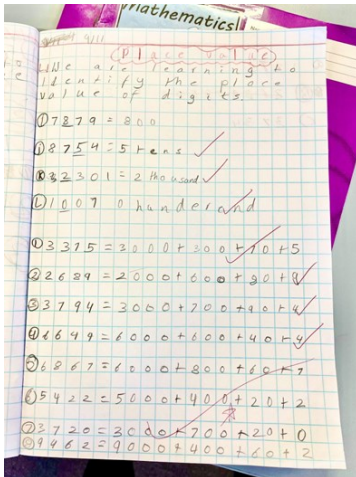 Mathematics
9/11
Place value
We are learning to
identify the place
value of digits.
① 7879 = 800
8754 = 5 tens
32301 = 2 thousand
1007 0 hunderand
① 3375 = 3000 + 300 + 70 + 5
② 2689 = 2000 + 600 + 80 + 9
③ 3794 = 3000 + 700 + 90 + 4
④ 6649 = 6000 + 600 + 40 + 9
⑤ 6867 = 6000 + 800 + 60 + 7
⑥ 5422 = 5000 + 400 + 20 + 2
⑦ 3720 = 3000 + 700 + 20 + 0
⑧ 9462 = 9000 + 400 + 60 + 2